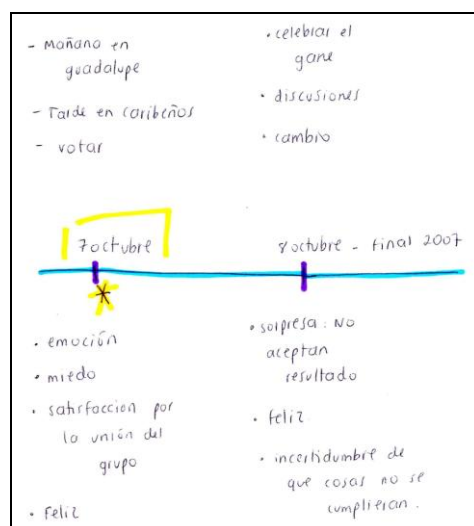 - Mañana en
guadalupe
- Tarde en caribeños
- votar
• celebrar el
gane
• discusiones
• cambio
7 octubre
8 octubre - final 2007
• emoción
• miedo
• satisfaccion por
la unión del
grupo
• Feliz
• sorpresa: No
aceptan
resultado
• feliz
• incertidumbre de
que cosas no se
cumplieran.